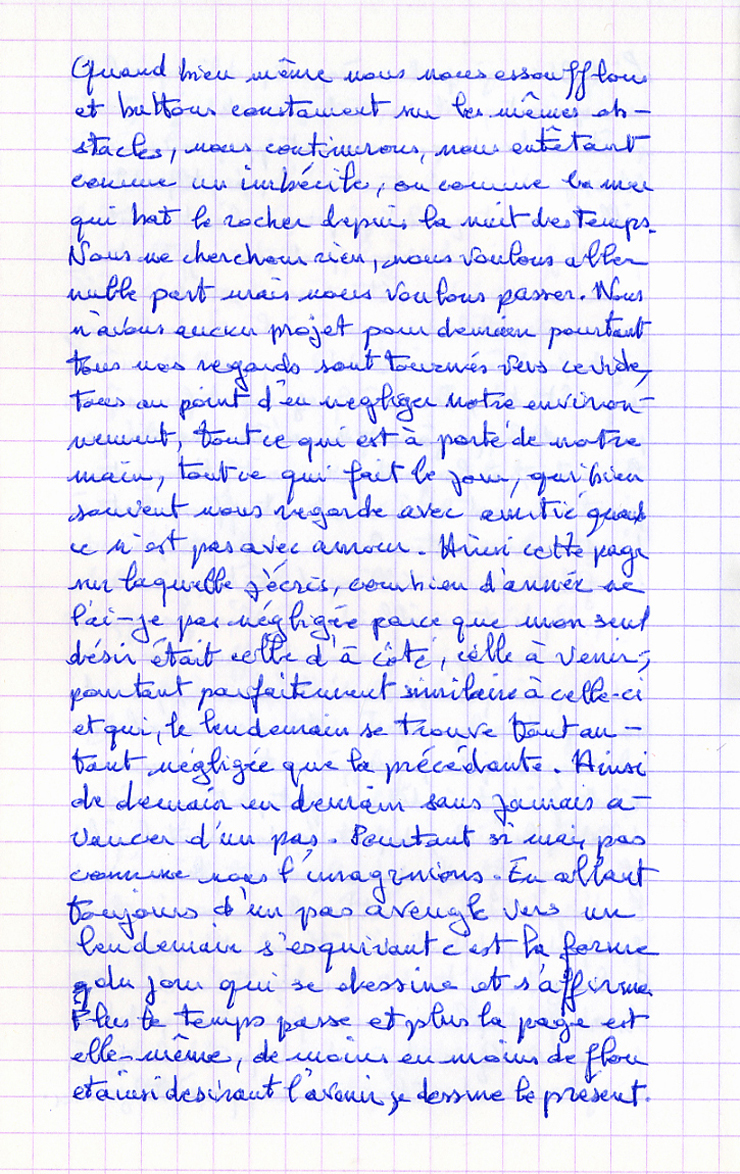 Quand bien même nous nous essoufflons
et buttons constament sur les mêmes ob-
stacles, nous continurons, nous entêtant
comme un imbécile, ou comme la mer
qui bat le rocher depuis la nuit des temps.
Nous ne cherchons rien, nous voulons aller
nulle part mais nous voulons passer. Nous
n'avons aucun projet pour demain pourtant
tous nos regards sont tournés vers ce vide,
tous au point d'en negliger notre environ-
nement, tout ce qui est à porté de notre
main, tout ce qui fait le jour, qui bien
souvent nous regarde avec amitié quand
ce n'est pas avec amour. Ainsi cette page
sur laquelle j'écris, combien d'année ne
l'ai-je pas négligée parce que mon seul
désir était celle d'à côté, celle à venir,
pourtant parfaitement similaire à celle-ci
et qui, le lendemain se trouve tout au-
tant négligée que la précédante. Ainsi
de demain en demain sans jamais a-
vancer d'un pas. Pourtant si mais pas
comme nous l'imaginions. En allant
toujours d'un pas aveugle vers un
lendemain s'esquivant c'est la forme
du jour qui se dessine et s'affirme.
Plus le temps passe et plus la page est
elle-même, de moins en moins de flou
et ainsi desirant l'avenir je dessine le présent.